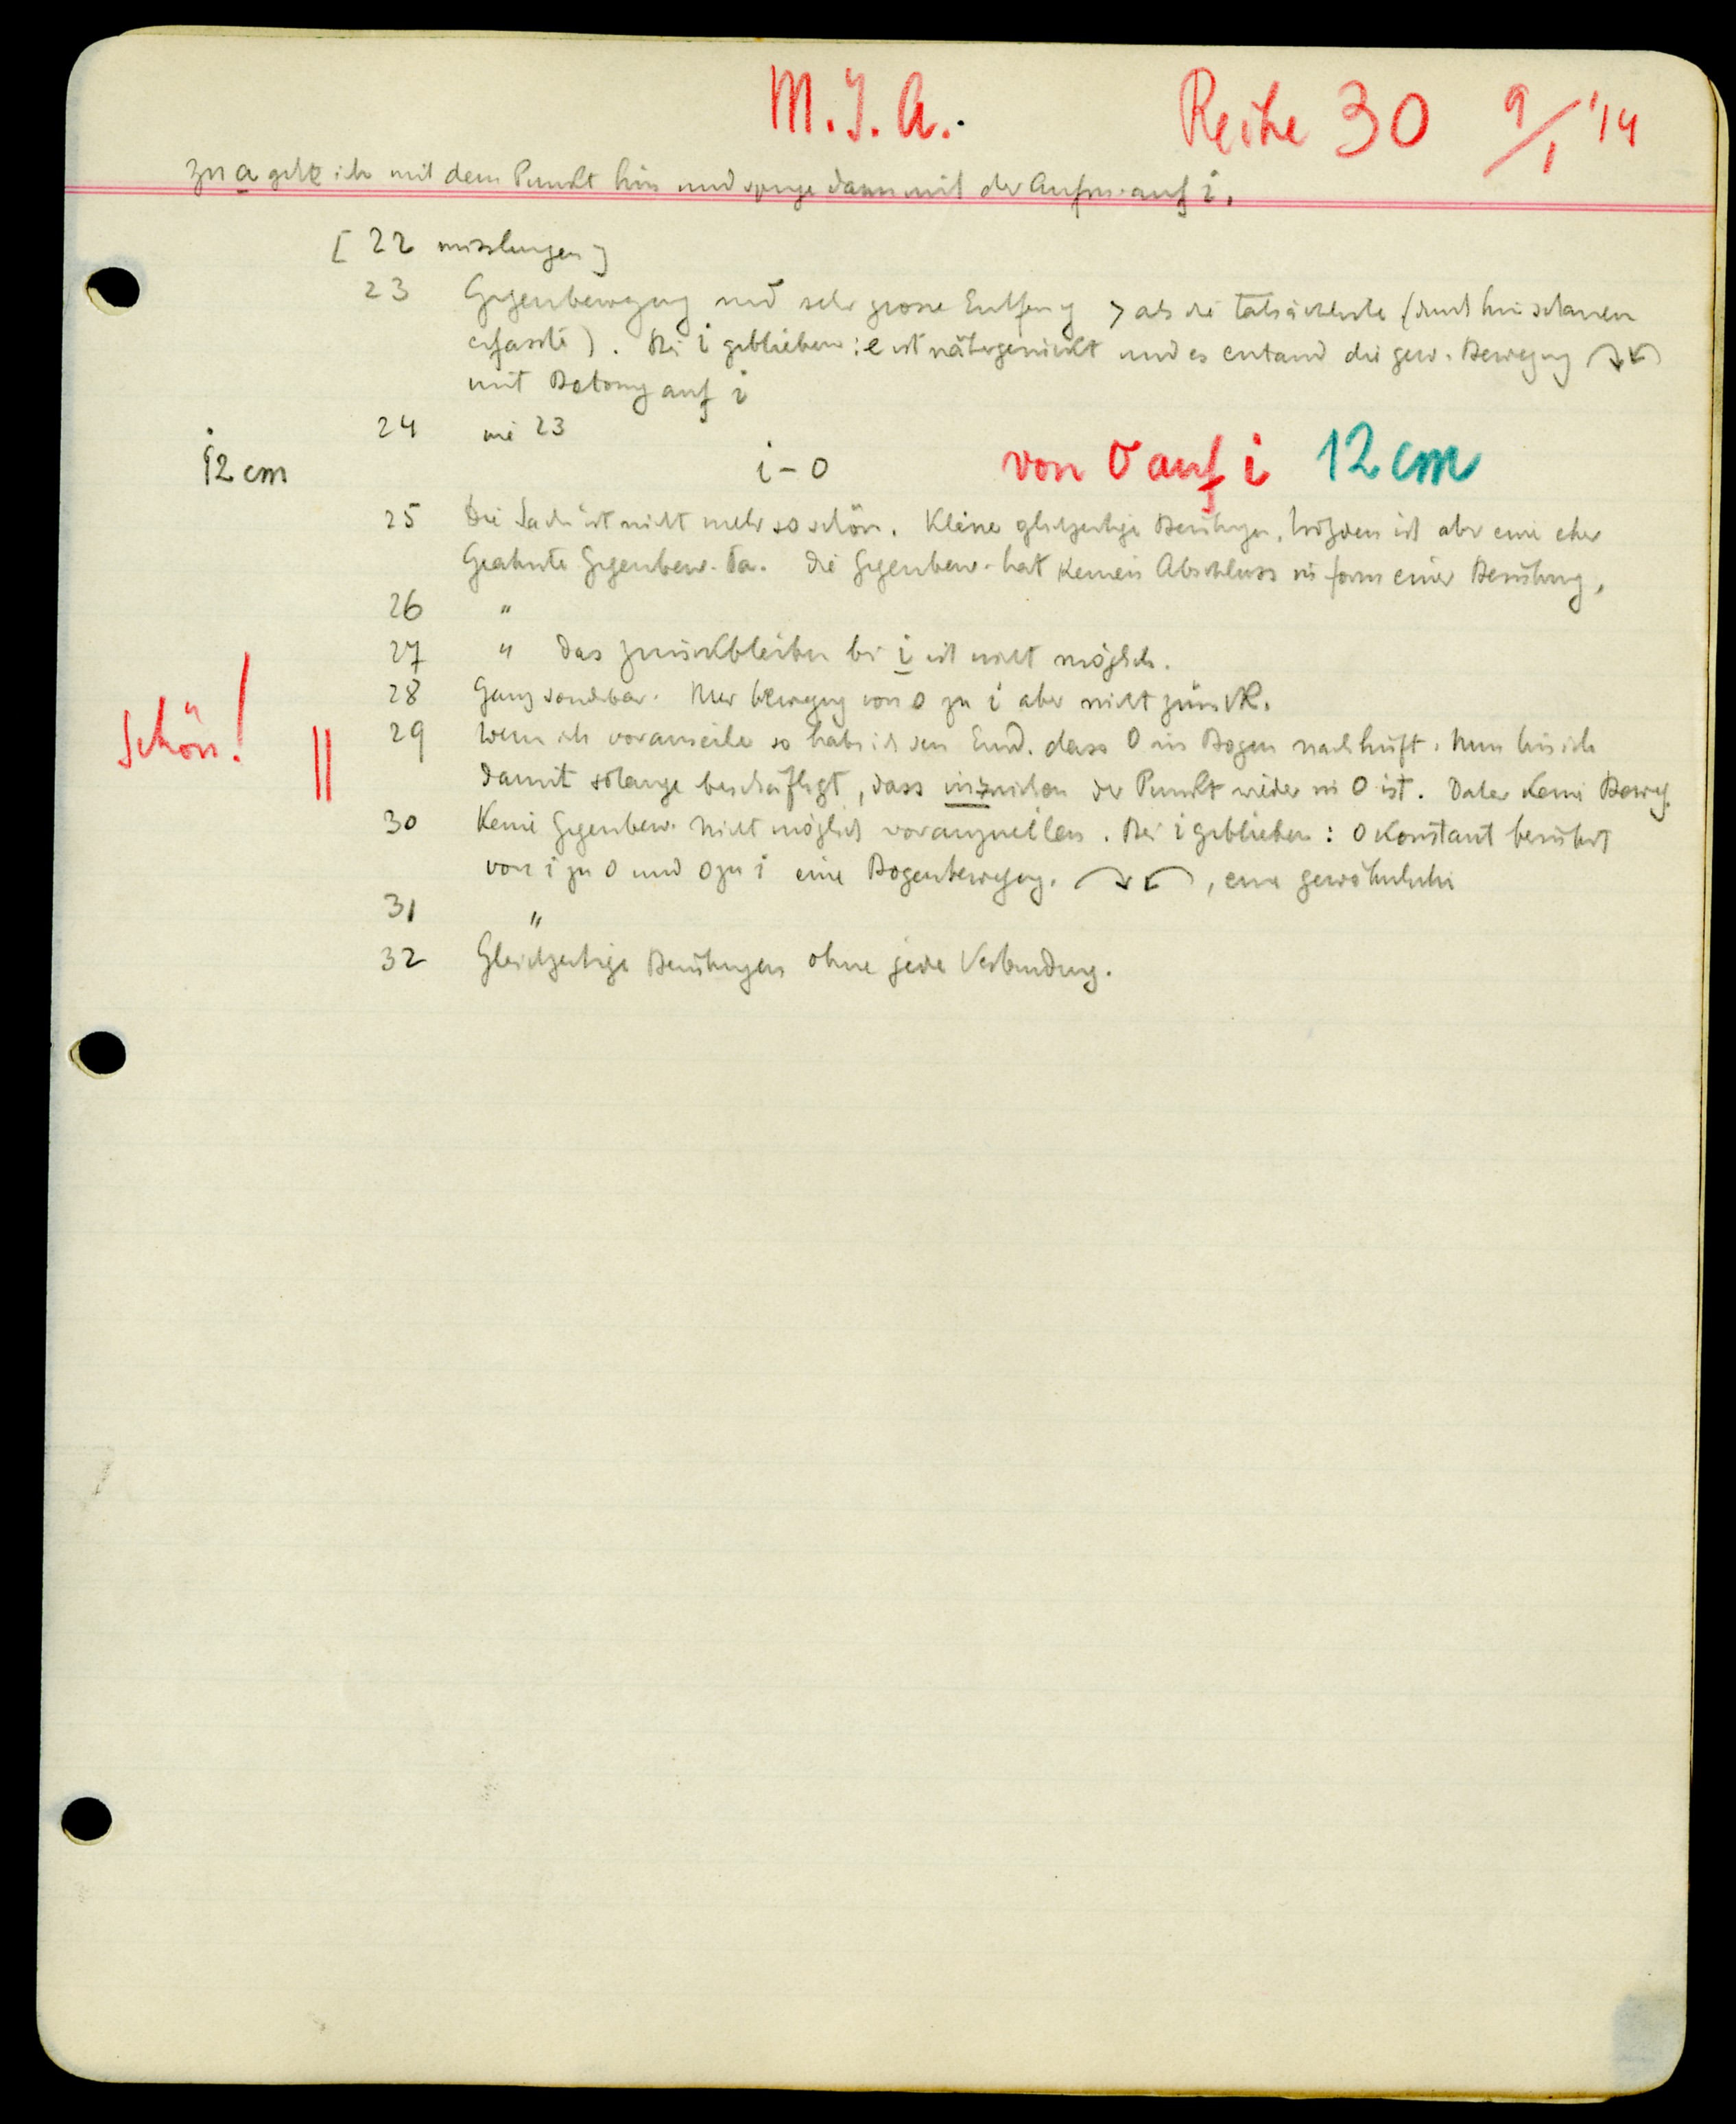 M. J. A. Reihe 30 9/1 '14
zu a gehe ich mit dem Punkt hin und springe dann mit der Aufm. auf i.
[22 misslungen]
23 Gegenbewegung und sehr grosse Entfng > als die tatsächliche (durch hinschauen
erfasste). Bei i geblieben: e ist nähergerückt und es entand die gew. Bewegung
mit Betong auf i
24 wie 23
12 cm i - o von o auf i 12 cm
25 Die Sache ist nicht mehr so schön. Kleine gleichzeitige Berührgen, trotzdem ist aber eine eher
Geahnte Gegenbew. da. Die Gegenbew. hat keinen Abschluss in form einer Berührung.
26 "
27 " Das zurückbleiben bei i ist nicht möglich.
28 Ganz sonderbar. Nur bewegung von o zu i aber nicht zurück.
schön! 29 Wenn ich vorauseile so habe ich den Eind. dass o im Bogen nachhüft. Nun bin ich
damit solange beschäftigt, dass inzwischen der Punkt wieder in o ist. Daher keine Beweg.
30 Keine Gegenbew. Nicht möglich vorauzueilen. Bei i geblieben: o konstant berührt
von i zu o und o zu i eine Bogenbewegung. , eine gewöhnliche
31 "
32 Gleichzeitige Berührungen ohne jede Verbindung.